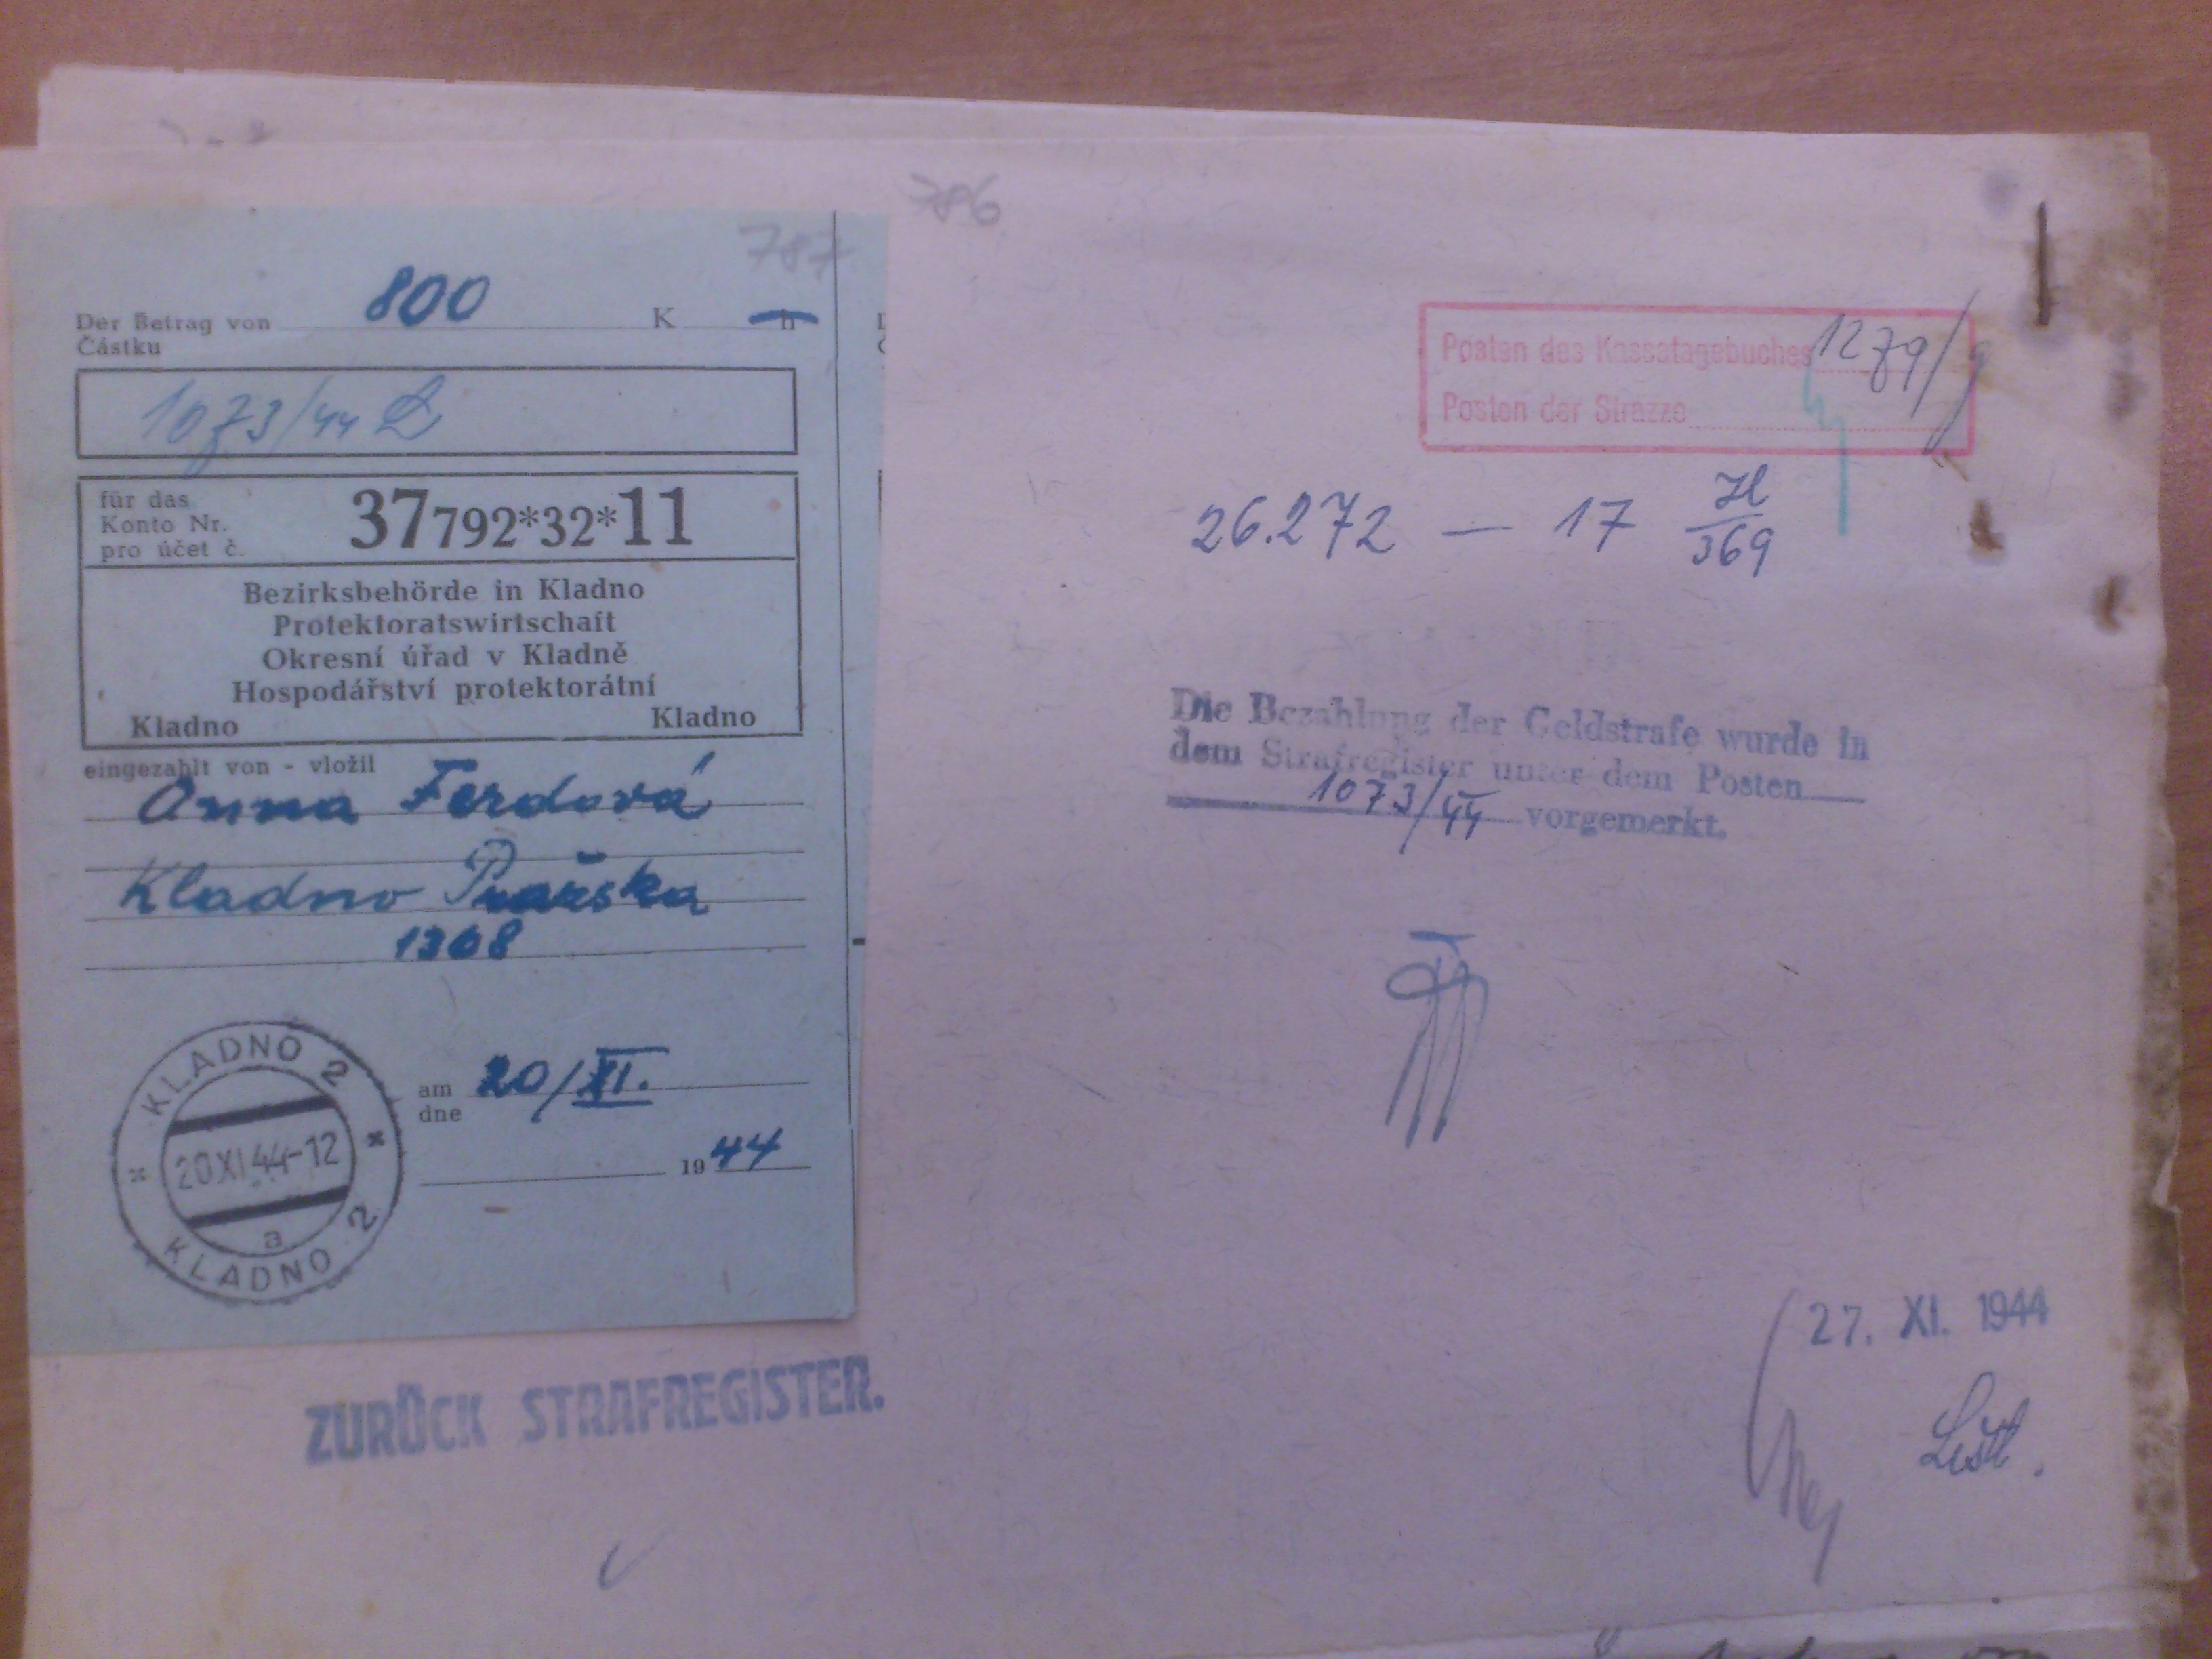 787
Der Betrag von 800 K h
Částku
1073/44
für das
Konto Nr. 37792*32*11
pro účet č.
Bezirksbehörde in Kladno
Protektoratswirtschaft
Okresní úřad v Kladně
Hospodářství protektorátní
Kladno Kladno
eingezahlt von - vložil
Anna Ferdová
Kladno Pražska
1368
KLADNO 2
20XI44-12
a
KLADNO 2
am 20/XI.
dne
1944
ZURÜCK STRAFREGISTER.
786
Posten des Kassatagebuches 1279/
Posten der Strazze
26.272 — 17
369
Die Bezahlung der Geldstrafe wurde in
dem Strafregister unter dem Posten
1073/44 vorgemerkt.
27. XI. 1944